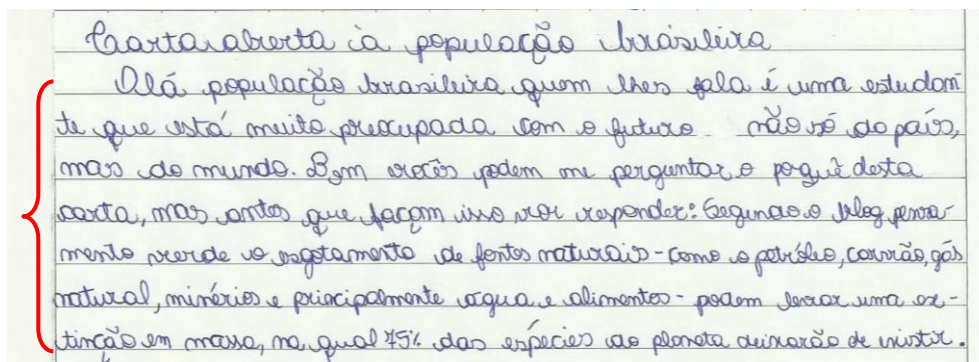 Carta aberta à população brasileira
Olá população brasileira quem lhes fala é uma estudan
te que está muito preocupada com o futuro não só do país,
mas do mundo. Bom vocês podem me perguntar o porquê desta
carta, mas antes que façam isso vou responder: Segundo o blog pensa-
mento verde o esgotamento de fontes naturais - como o petróleo, carvão, gás
natural, minérios e principalmente água e alimentos - podem levar uma ex-
tinção em massa, na qual 75% das espécies do planeta deixarão de existir.